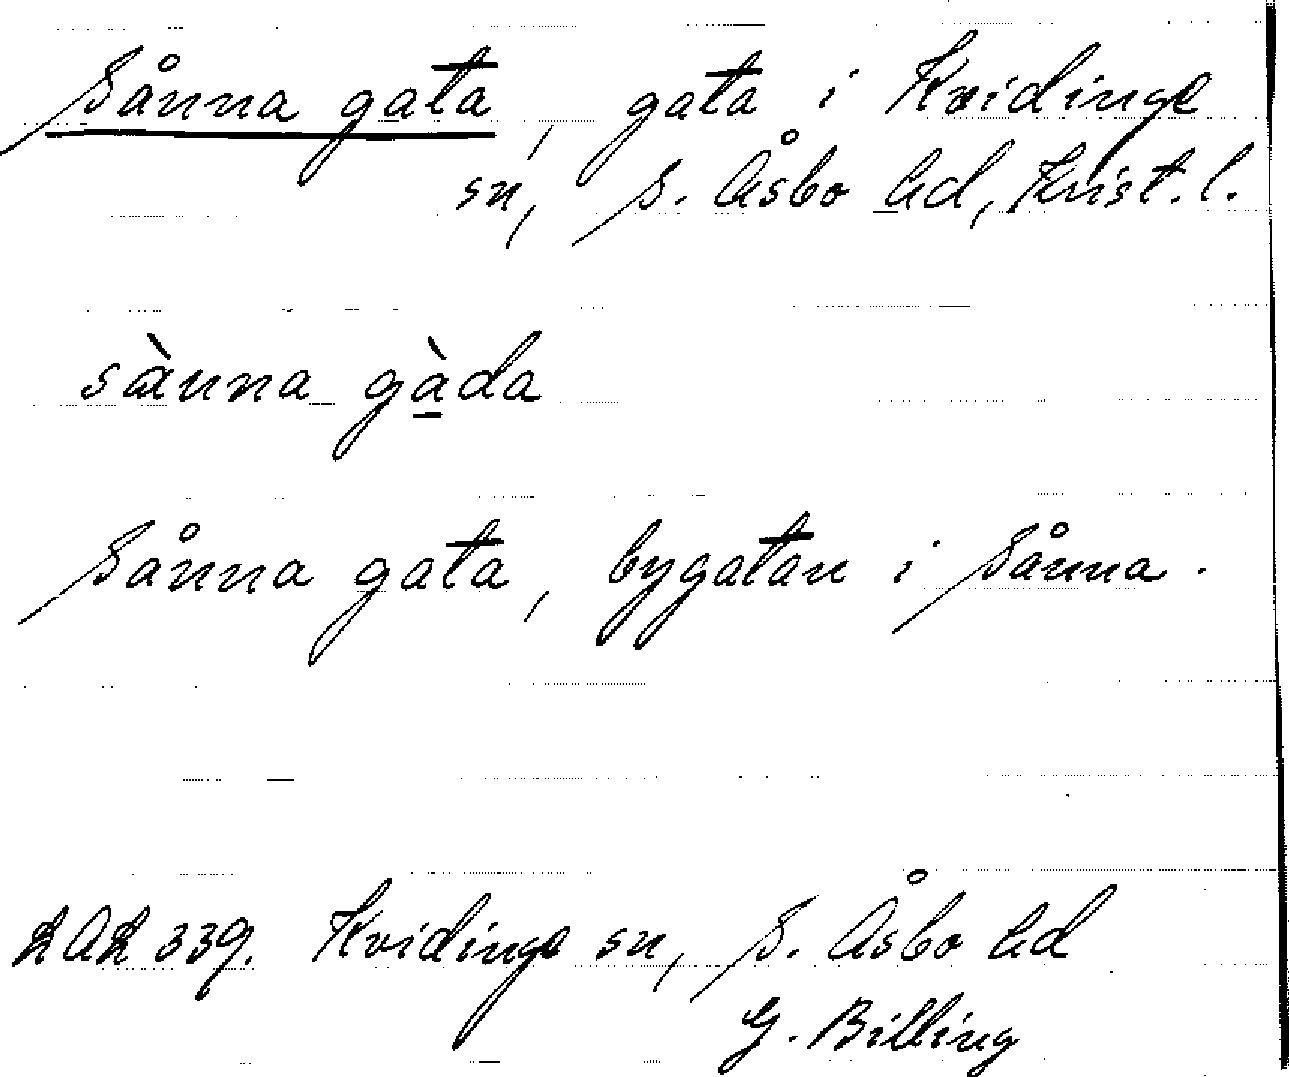 Sånna gata, gata i Kvidinge
sn, S. Åsbo hd, Krist. l.
sànna gàda
Sånna gata, bygatan i Sånna.
LAL 339. Kvidinge sn, S. Åsbo hd
G. Billing